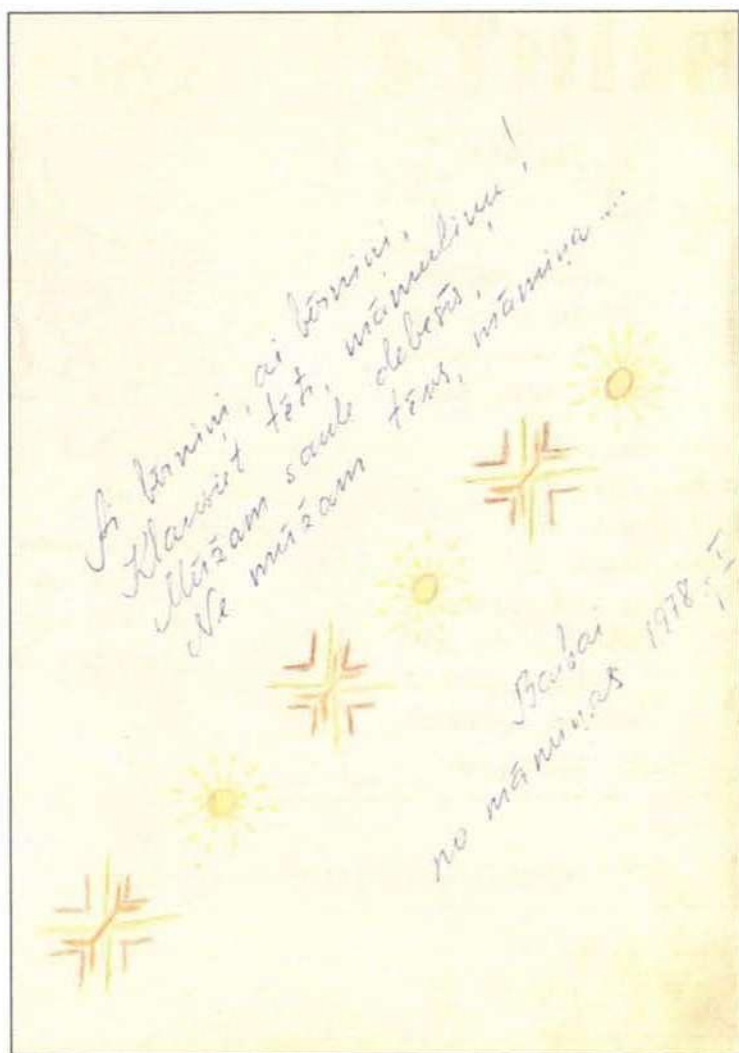 Ai bērniņi, ai bērniņi,
Klausiet tēti, māmuliņu!
Mūžam saule debesīs,
Ne mūžam tēvs, māmiņa...
Baibai
no māmiņas 1978.